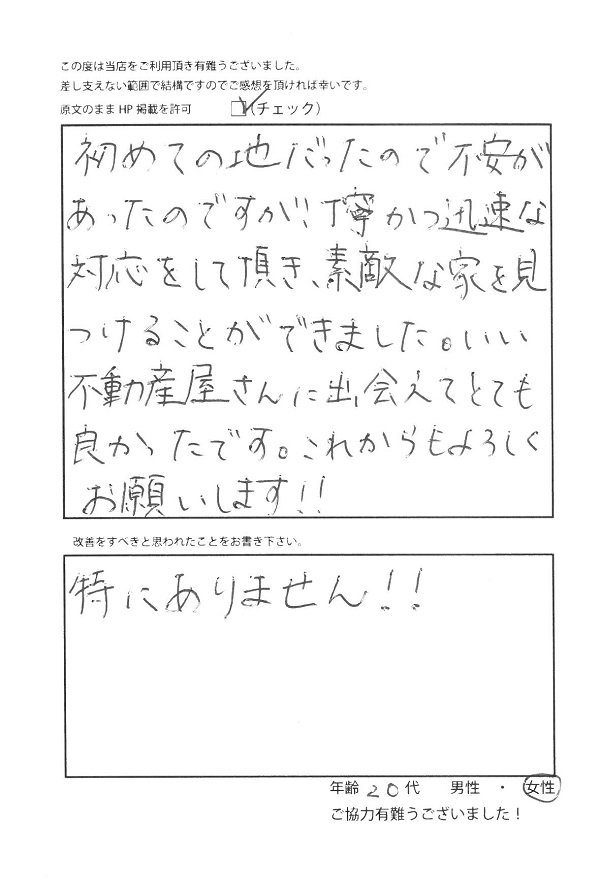 この度は当店をご利用頂き有難うございました。
差し支えない範囲で結構ですのでご感想を頂ければ幸いです。
原文のまま HP 掲載を許可 (チェック)
初めての地だったので不安が
あったのですが、丁寧かつ迅速な
対応をして頂き、素敵な家を見
つけることができました。いい
不動産屋さんに出会えてとても
良かったです。これからもよろしく
お願いします!!
改善をすべきと思われたことをお書き下さい。
特にありません!!
年齢 20代 男性 ・ 女性
ご協力有難うございました！